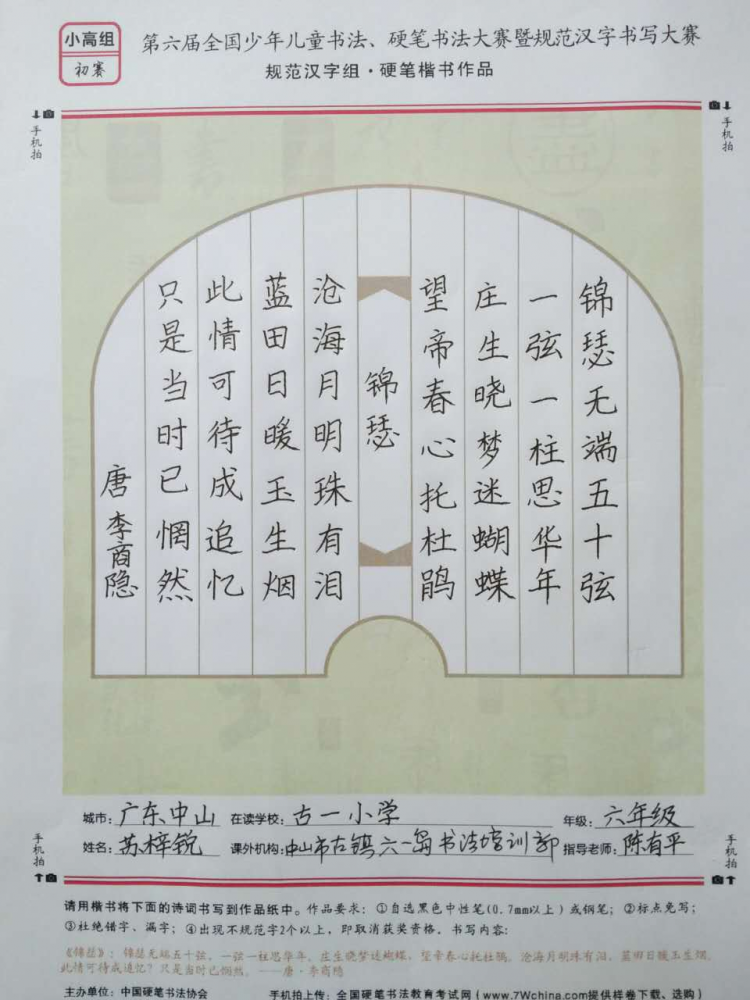 小高组
初赛
第六届全国少年儿童书法、硬笔书法大赛暨规范汉字书写大赛
规范汉字组·硬笔楷书作品
手机拍
手机拍
锦瑟无端五十弦
一弦一柱思华年
庄生晓梦迷蝴蝶
望帝春心托杜鹃
锦瑟
沧海月明珠有泪
蓝田日暖玉生烟
此情可待成追忆
只是当时已惘然
唐 李商隐
城市:广东中山 在读学校:古一小学 年级:六年级
姓名:苏梓锐 课外机构:中山市古镇六一岛书法培训部 指导老师:陈有平
手机拍
手机拍
请用楷书将下面的诗词书写到作品纸中。作品要求:①自选黑色中性笔(0.7mm以上)或钢笔;②标点免写;
③杜绝错字、漏字;④出现不规范字2个以上,即取消获奖资格。书写内容:
《锦瑟》:锦瑟无端五十弦,一弦一柱思华年。庄生晓梦迷蝴蝶,望帝春心托杜鹃。沧海月明珠有泪,蓝田日暖玉生烟。
此情可待成追忆?只是当时已惘然。——唐·李商隐
主办单位:中国硬笔书法协会 手机拍上传:全国硬笔书法教育考试网(www.7Wchina.com提供样卷下载、选购)